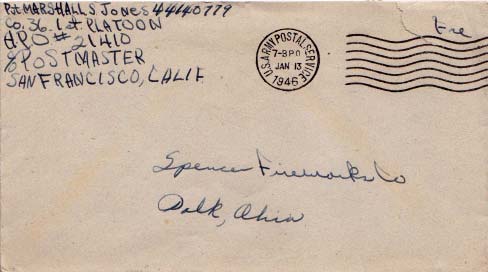 Pvt MARSHALL S Jones 44140779
Co. 36. 1st PLATOON
APO # 21410
% POSTMASTER
SAN FRANCISCO, CALIF
U.S. ARMY POSTAL SERVICE
7-BPO
JAN 13
1946
Free
Spencer Fireworks Co
Polk, Ohio